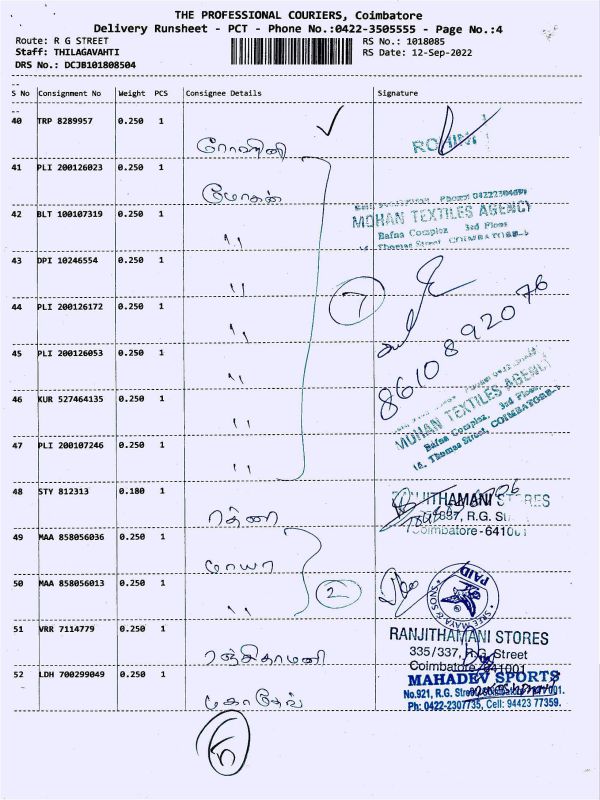 THE PROFESSIONAL COURIERS, Coimbatore
Delivery Runsheet - PCT - Phone No.:0422-3505555 - Page No.:4
Route: R G STREET RS No.: 1018085
Staff: THILAGAVAHTI RS Date: 12-Sep-2022
DRS No.: DCJB101808504
S No Consignment No Weight PCS Consignee Details Signature
40 TRP 8289957 0.250 1
ரோஹிணி ROHINI
41 PLI 200126023 0.250 1
மோகன்
42 BLT 100107319 0.250 1 MOHAN TEXTILES AGENCY
" Bafna Complex 3rd Floor
Thomas Street COIMBATORE-1
43 DPI 10246554 0.250 1
"
44 PLI 200126172 0.250 1 7
"
45 PLI 200126053 0.250 1 8610892076
"
46 KUR 527464135 0.250 1 MOHAN TEXTILES AGENCY
" Bafna Complex, 3rd Floor,
47 PLI 200107246 0.250 1 16, Thomas Street, COIMBATORE-1
"
48 STY 812313 0.180 1 STORES
ரத்னா R.G. St
49 MAA 858056036 0.250 1 Coimbatore - 641001
மாயா
50 MAA 858056013 0.250 1 2 PAID
" SREE MAYA & SONS
51 VRR 7114779 0.250 1 RANJITHAMANI STORES
335/337, R.G. Street
ரஞ்சிதாமணி Coimbatore - 641001
52 LDH 700299049 0.250 1 MAHADEV SPORTS
மகாதேவ் No.921, R.G. Street, Coimbatore
Ph: 0422-2307735, Cell: 94423 77359.